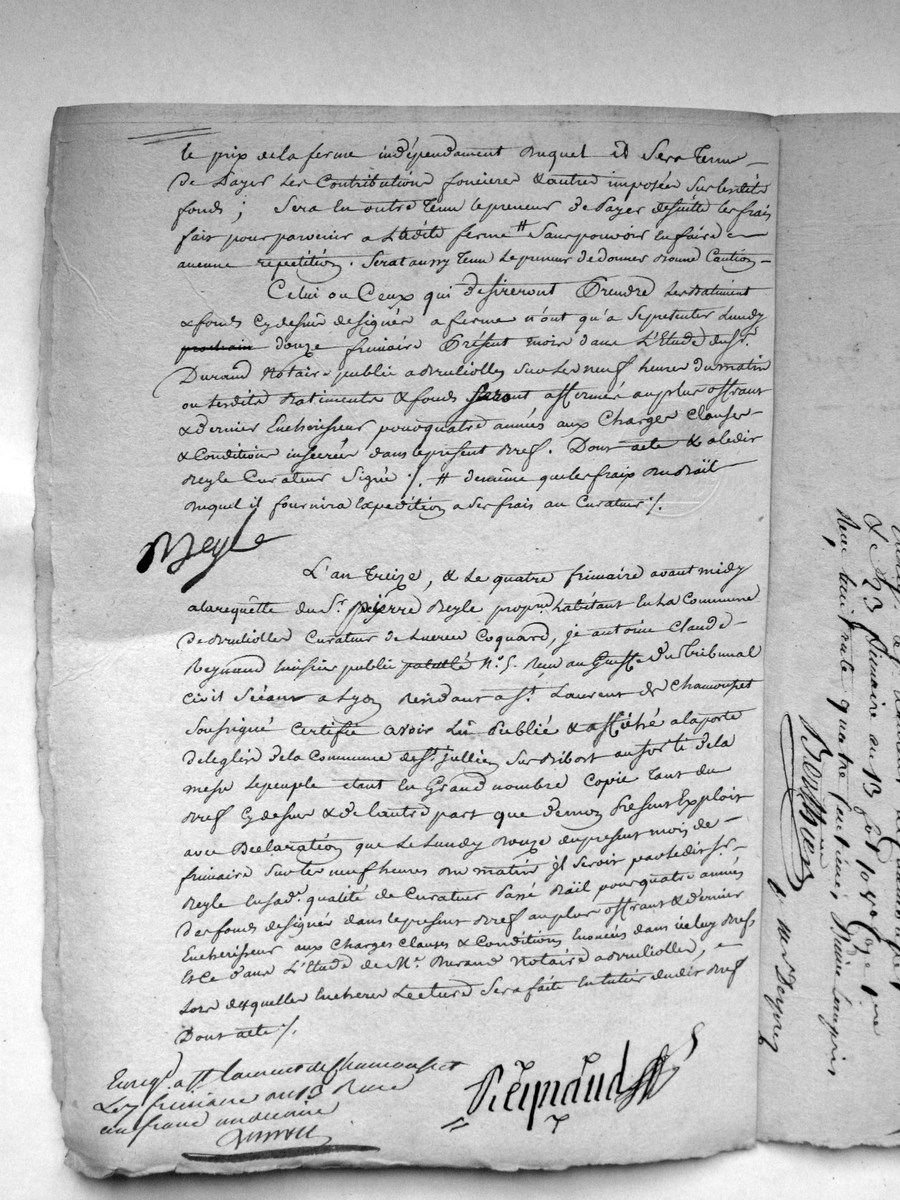 le prix de la ferme indépendament duquel il Sera Tenu
de Payer Les Contributions foncieres & autres imposées sur lesdits
fonds; Sera En outre Tenu le preneur de Payer de suite les frais
fait pour parvenir a Ladite ferme # Sans pouvoir En faire
aucune repetition. Serat aussy Tenu Le preneur de donner Bonne Caution
Celui ou Ceux qui desireront Prendre Les Batiment
& fonds Cy dessus designés a ferme n'ont qu'a Se presenter Lundy
prochain douze frimaire Présent mois dans L'Etude du Sr.
Durand Notaire public a Brullioles sur Les neuf heures du matin
ou lesdits Batiments & fonds Seront affermés au plus offrant
& dernier Encherisseur pour quatre années aux Charges Clauses
& Conditions inserées dans le present Bref. Dont acte & a ledit
Beyle Curateur Signé /. # de même que les frais du Bail
duquel il fournira Expedition a Ses frais au Curateur /.
Beyle
L'an Treize, & Le quatre frimaire avant midy
a la requette du Sr. pierre Beyle propre. habitant En La Commune
de Brullioles Curateur de Coquard, je antoine Claude
Reynaud huissier public patenté No. 5. Reçu au Greffe du Tribunal
Civil Séeant a Lyon Residant a St. Laurent de Chamousset
Soussigné Certifie avoir Lû Publié & affiché a la porte
de leglise de la Commune de St. jullien Sur Bibost au Sortir de la
messe Le peuple etant En Grand nombre Copie Tant du
Bref Cy dessus & de l'autre part que de mon Présent Exploit
avec Déclaration que Le Lundy Douze du present mois de
frimaire Sur les neuf heures du matin il Seroit par ledit Sr.
Beyle En Sade. qualité de Curateur Passé Bail pour quatre années
des fonds designés dans le present Bref au plus offrant & dernier
Encherisseur aux Charges Clauses & Conditions Enoncées dans iceluy Bref
Et Ce dans L'Etude de Me. Durand Notaire a Brullioles,
Lors desquelles Encheres Lecture Sera faite En Entier dudit Bref
Dont acte /.
Enregé. a St. Laurent de Chamousset
Le frimaire an 13 Reçu
un franc
Reynaud
Le 23 frimaire an 13 fol 104
Reçu